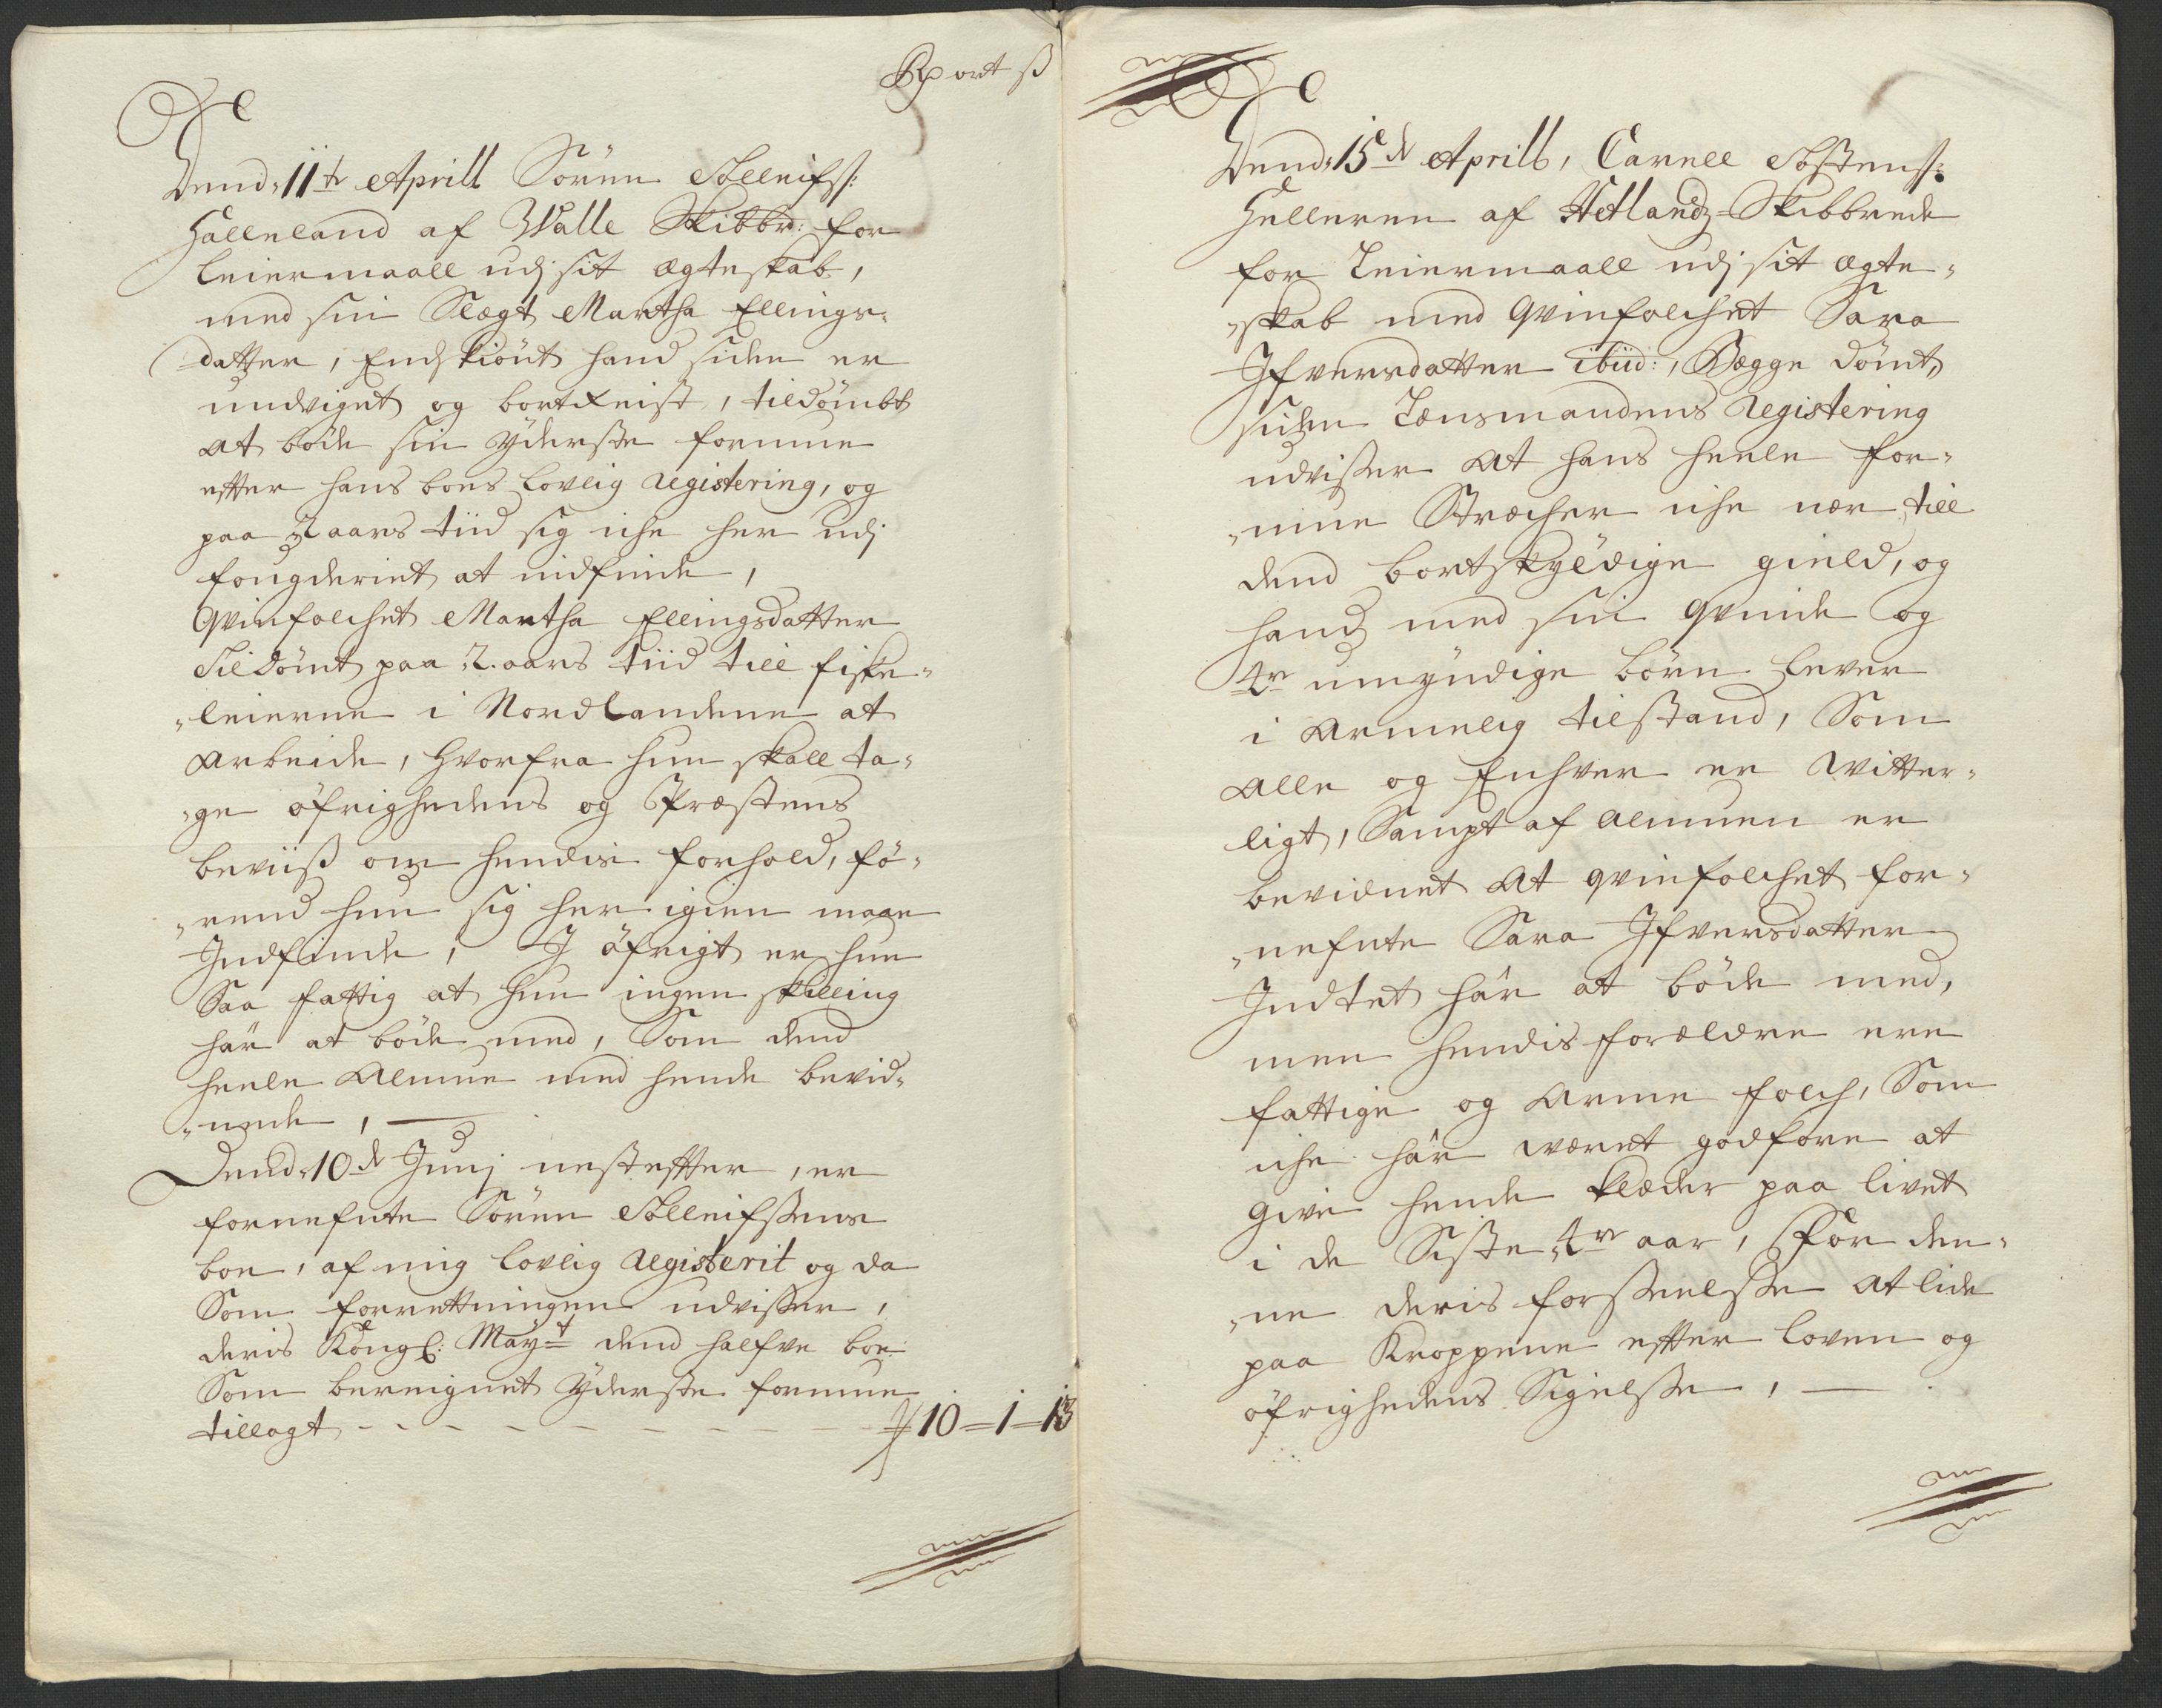 Dend 11te Aprill Sören Tolleifs:
Halleland af Walle Skibbr: for
leiermaall udj sit ægteskab,
med sin Slægt Martha Ellings„
datter, Endskiönt hand siden er
undviget og bortreist, tildömbt
at böde sin yderste formue
effter hans boes lovlig Registering, og
paa 3 aars tiid sig iche her udj
fougderiet at indfinde,
Qvinfolchet Martha Ellingsdatter
Tildömt paa 2. aars tiid till fiske„
„leierne i Nordlandene at
arbeide, hvorfra hun skall ta„
„ge öfrighedens og Præstens
beviiß om hendis forhold, fö„
„rend hun sig her igien maae
Indfinde, I öfrigt er hun
saa fattig at hun ingen skilling
har at böde med, Som dend
heele Almue med hende bevid„
„nede,
Dend 10de Junj nesteffter, er
fornefnte Sören Tolleifsens
boe, af mig lovlig Registerit og da
Som forrettningen udvisser,
deris Kongl: Mayt dend halfve boe
Som beregnet yderste formue
tillagt 10-1-13
Dend 15de Aprill, Carnel Tostens:
Helleren af Hetlandz-Skibbrede
for Leiermaall udj sit ægte„
„skab med Qvinfolchet Sara
Ifversdatter ibiid:, Begge dömt,
siden Lensmandens Registering
udvisser At hans heele for„
„mue Strecher iche nær till
dend bortskyldige gield, og
hand med sin Qvinde og
4re umyndige börn lever
i armelig tilstand, Som
alle og Enhver er witter„
ligt, Sampt af almuen er
bevidnet At qvinfolchet for„
„nefnte Sara Ifversdatter
Indtet har at böde med,
men hendis forældre ere
fattige og arme folch, Som
iche har været godfore at
give hende klæder paa livet
i de Siste 4re aar, For den„
„ne deris forseelsse At lide
paa Kroppene effter loven og
öfrighedens Sigelsse,